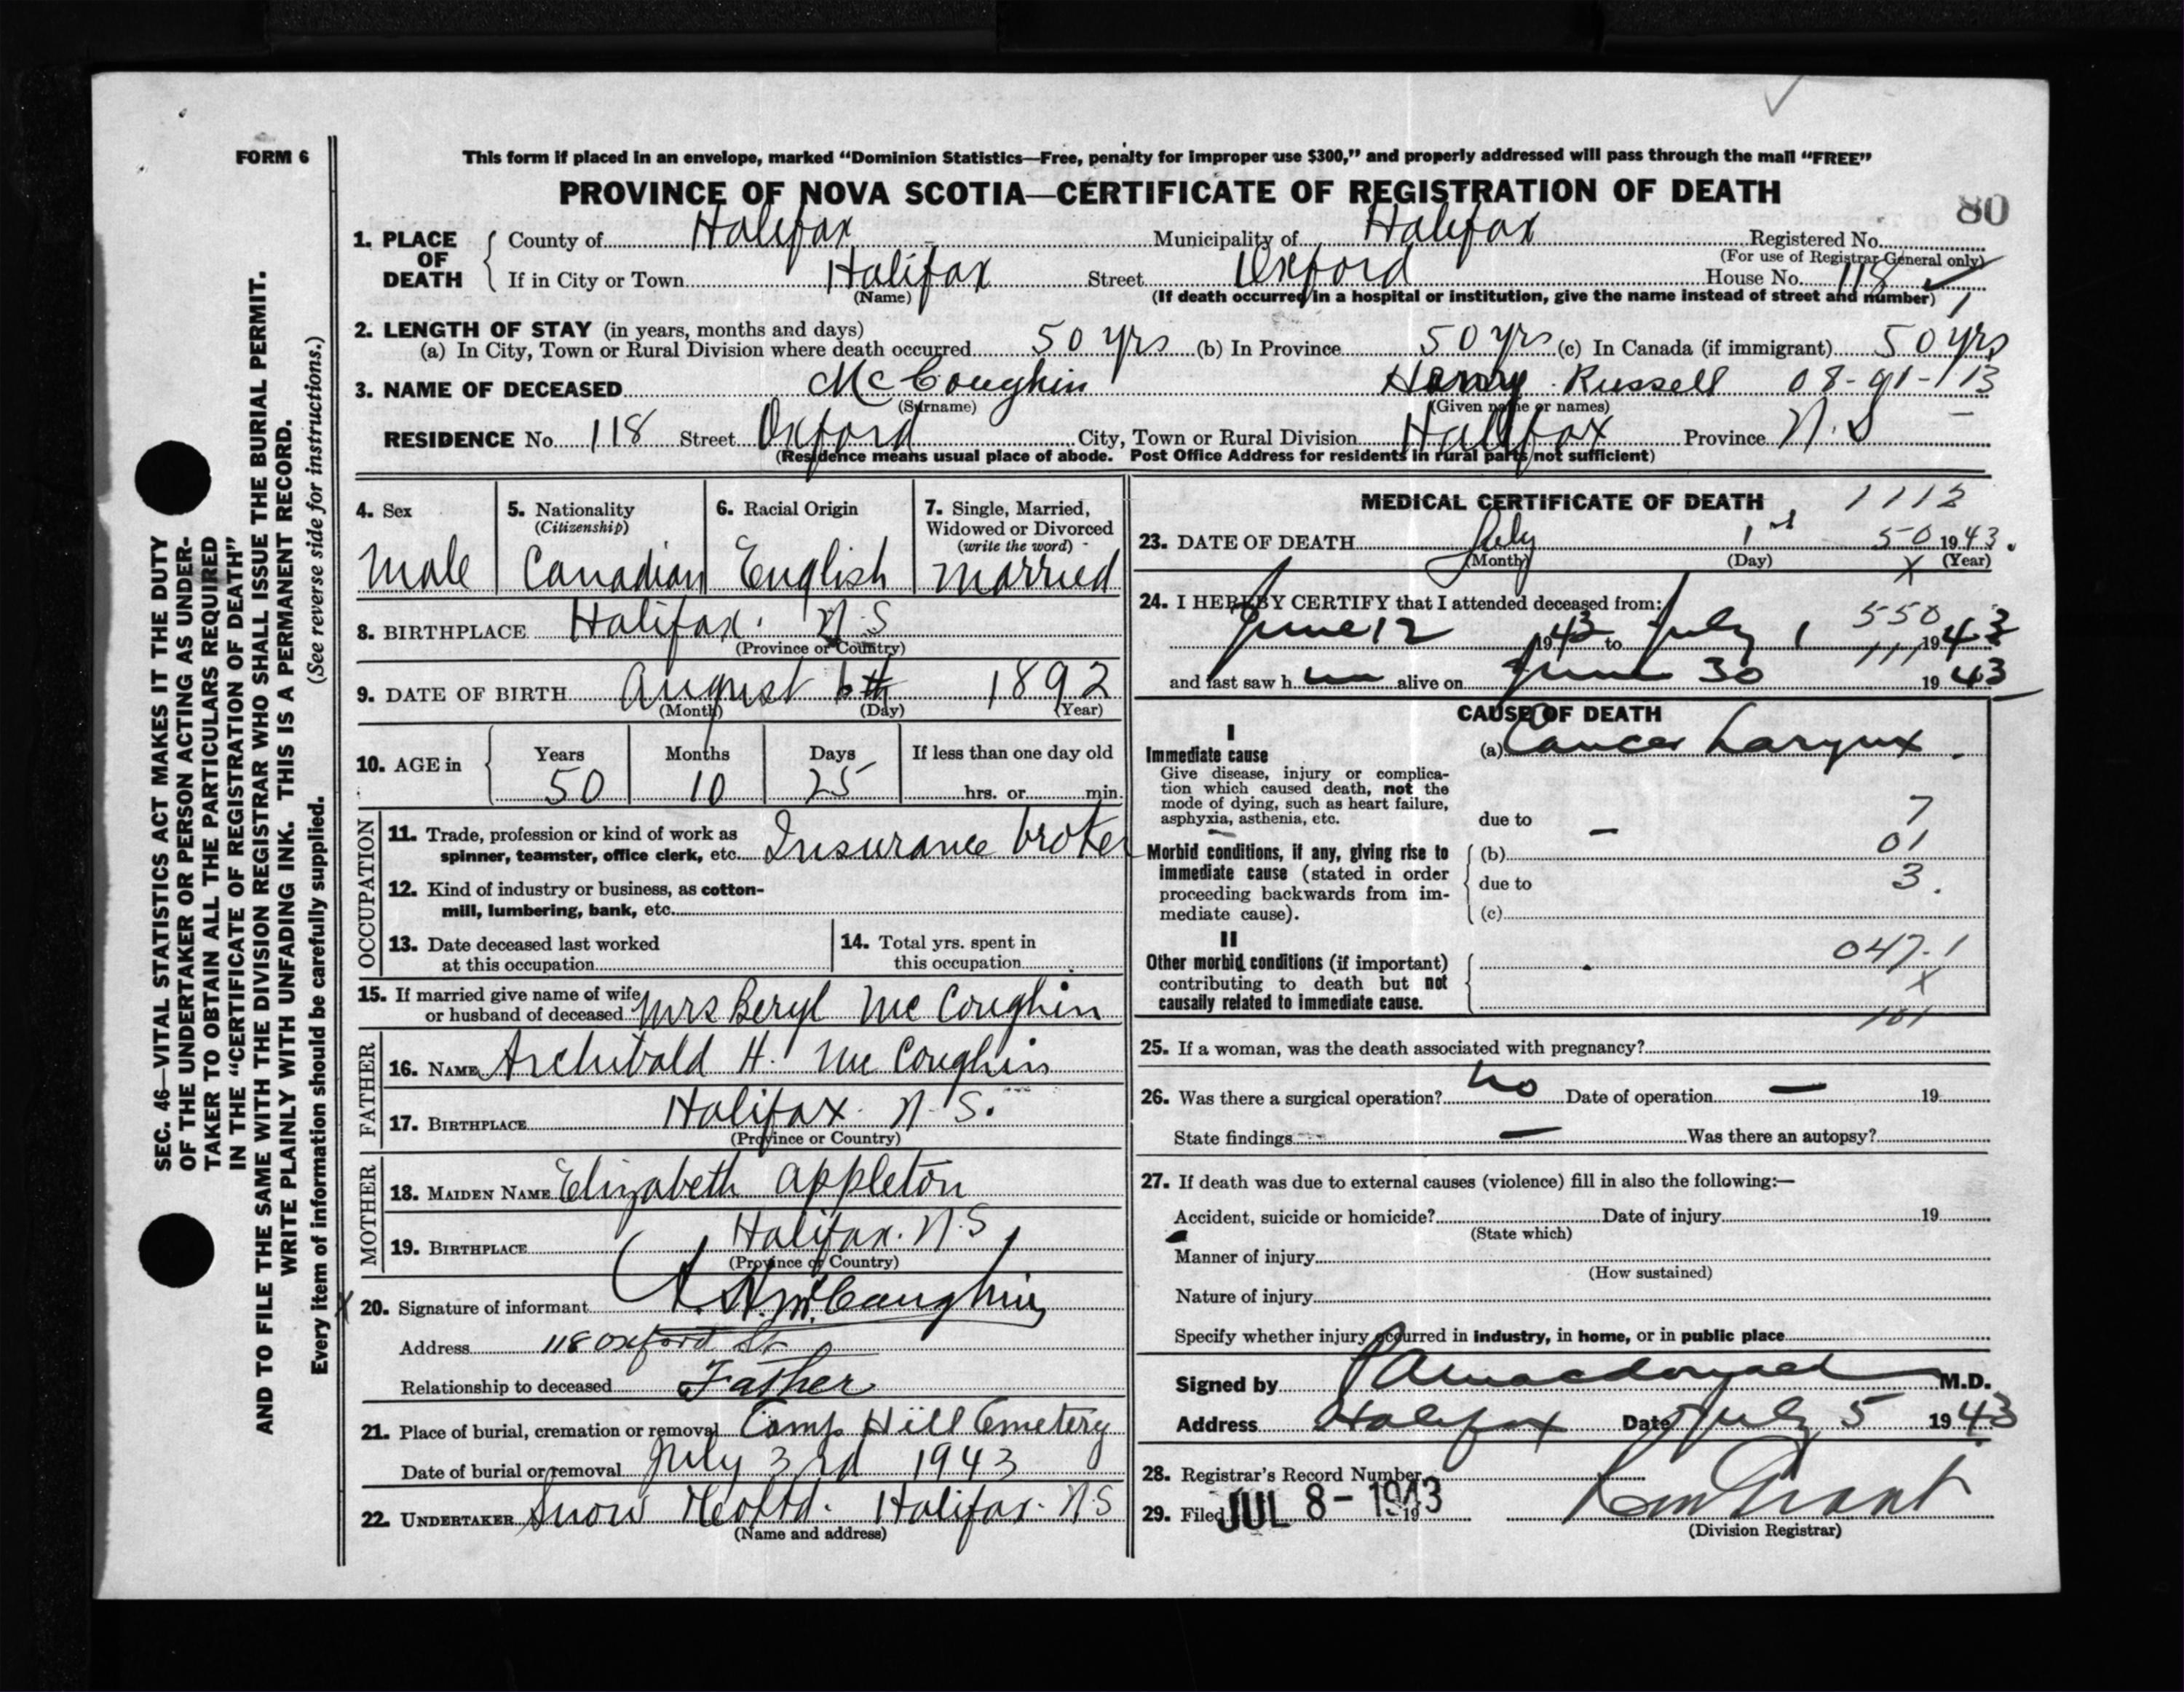 FORM 6
This form if placed in an envelope, marked “Dominion Statistics—Free, penalty for improper use $300,” and properly addressed will pass through the mail “FREE”
PROVINCE OF NOVA SCOTIA—CERTIFICATE OF REGISTRATION OF DEATH
80
1. PLACE OF DEATH
County of Halifax Municipality of Halifax Registered No.
(For use of Registrar General only)
If in City or Town Halifax Street Oxford House No. 118
(Name) (If death occurred in a hospital or institution, give the name instead of street and number) 1
2. LENGTH OF STAY (in years, months and days)
(a) In City, Town or Rural Division where death occurred 50 yrs (b) In Province 50 yrs (c) In Canada (if immigrant) 50 yrs
3. NAME OF DECEASED McCoughin Harry Russell 08-91-113
(Surname) (Given name or names)
RESIDENCE No. 118 Street Oxford City, Town or Rural Division Halifax Province N.S
(Residence means usual place of abode. Post Office Address for residents in rural parts not sufficient)
4. Sex
Male
5. Nationality
(Citizenship)
Canadian
6. Racial Origin
English
7. Single, Married,
Widowed or Divorced
(write the word)
Married
8. BIRTHPLACE Halifax. N.S
(Province or Country)
9. DATE OF BIRTH August 6th 1892
(Month) (Day) (Year)
10. AGE in
Years Months Days If less than one day old
50 10 25 hrs. or min.
OCCUPATION
11. Trade, profession or kind of work as
spinner, teamster, office clerk, etc. Insurance broker
12. Kind of industry or business, as cotton-
mill, lumbering, bank, etc.
13. Date deceased last worked
at this occupation
14. Total yrs. spent in
this occupation
15. If married give name of wife
or husband of deceased Mrs Beryl McCoughin
FATHER
16. NAME Archibald H. McCoughin
17. BIRTHPLACE Halifax. N.S.
(Province or Country)
MOTHER
18. MAIDEN NAME Elizabeth Appleton
19. BIRTHPLACE Halifax. N.S
(Province or Country)
X 20. Signature of informant A. H. McCoughin
Address 118 Oxford St
Relationship to deceased Father
21. Place of burial, cremation or removal Camp Hill Cemetery
Date of burial or removal July 3rd 1943
22. UNDERTAKER Snow Halifax. NS
(Name and address)
MEDICAL CERTIFICATE OF DEATH 1112
23. DATE OF DEATH July 1st 50 1943.
(Month) (Day) X (Year)
24. I HEREBY CERTIFY that I attended deceased from:
550
June 12 1943 to July 1 1943
111
and last saw h alive on June 30 1943
CAUSE OF DEATH
I
Immediate cause
Give disease, injury or complica-
tion which caused death, not the
mode of dying, such as heart failure,
asphyxia, asthenia, etc.
(a) Cancer Larynx.
due to 7
Morbid conditions, if any, giving rise to
immediate cause (stated in order
proceeding backwards from im-
mediate cause).
(b) — 01
due to 3.
(c)
II
Other morbid conditions (if important)
contributing to death but not
causally related to immediate cause.
047-1
X
101
25. If a woman, was the death associated with pregnancy?
26. Was there a surgical operation? No Date of operation — 19
State findings — Was there an autopsy?
27. If death was due to external causes (violence) fill in also the following:—
Accident, suicide or homicide? Date of injury 19
(State which)
Manner of injury
(How sustained)
Nature of injury
Specify whether injury occurred in industry, in home, or in public place
Signed by Macdonald M.D.
Address Halifax Date July 5 1943
28. Registrar's Record Number
29. Filed JUL 8 - 1943 19
(Division Registrar)
SEC. 46—VITAL STATISTICS ACT MAKES IT THE DUTY
OF THE UNDERTAKER OR PERSON ACTING AS UNDER-
TAKER TO OBTAIN ALL THE PARTICULARS REQUIRED
IN THE “CERTIFICATE OF REGISTRATION OF DEATH”
AND TO FILE THE SAME WITH THE DIVISION REGISTRAR WHO SHALL ISSUE THE BURIAL PERMIT.
WRITE PLAINLY WITH UNFADING INK. THIS IS A PERMANENT RECORD.
Every item of information should be carefully supplied. (See reverse side for instructions.)